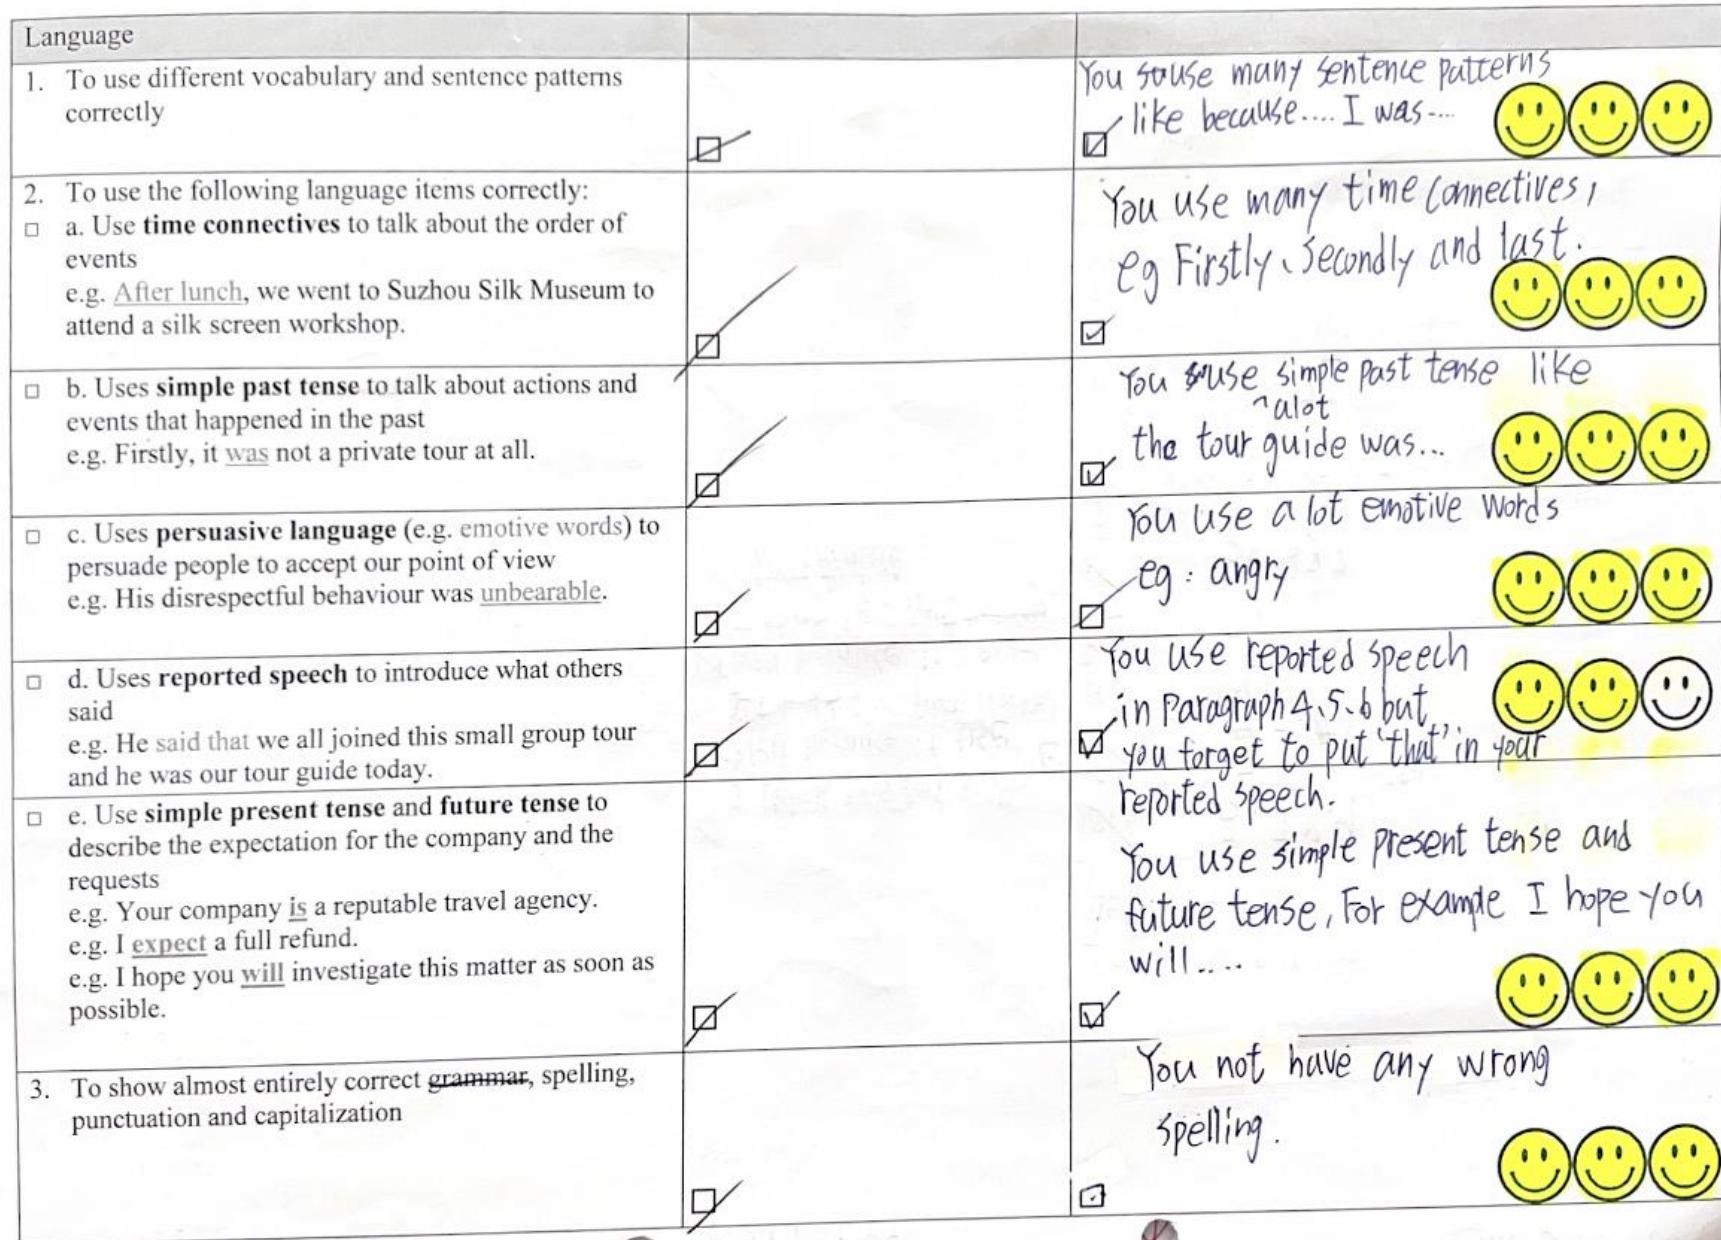 Language
1. To use different vocabulary and sentence patterns
correctly
You use many sentence patterns
like because.... I was....
2. To use the following language items correctly:
a. Use time connectives to talk about the order of
events
e.g. After lunch, we went to Suzhou Silk Museum to
attend a silk screen workshop.
You use many time connectives,
eg Firstly、Secondly and last.
b. Uses simple past tense to talk about actions and
events that happened in the past
e.g. Firstly, it was not a private tour at all.
You use simple past tense like
^alot
the tour guide was...
c. Uses persuasive language (e.g. emotive words) to
persuade people to accept our point of view
e.g. His disrespectful behaviour was unbearable.
You use a lot emotive words
eg : angry
d. Uses reported speech to introduce what others
said
e.g. He said that we all joined this small group tour
and he was our tour guide today.
You use reported speech
in Paragraph 4、5、6 but
you forget to put 'that' in your
reported speech.
e. Use simple present tense and future tense to
describe the expectation for the company and the
requests
e.g. Your company is a reputable travel agency.
e.g. I expect a full refund.
e.g. I hope you will investigate this matter as soon as
possible.
You use simple present tense and
future tense, For example I hope you
will....
3. To show almost entirely correct grammar, spelling,
punctuation and capitalization
You not have any wrong
spelling.